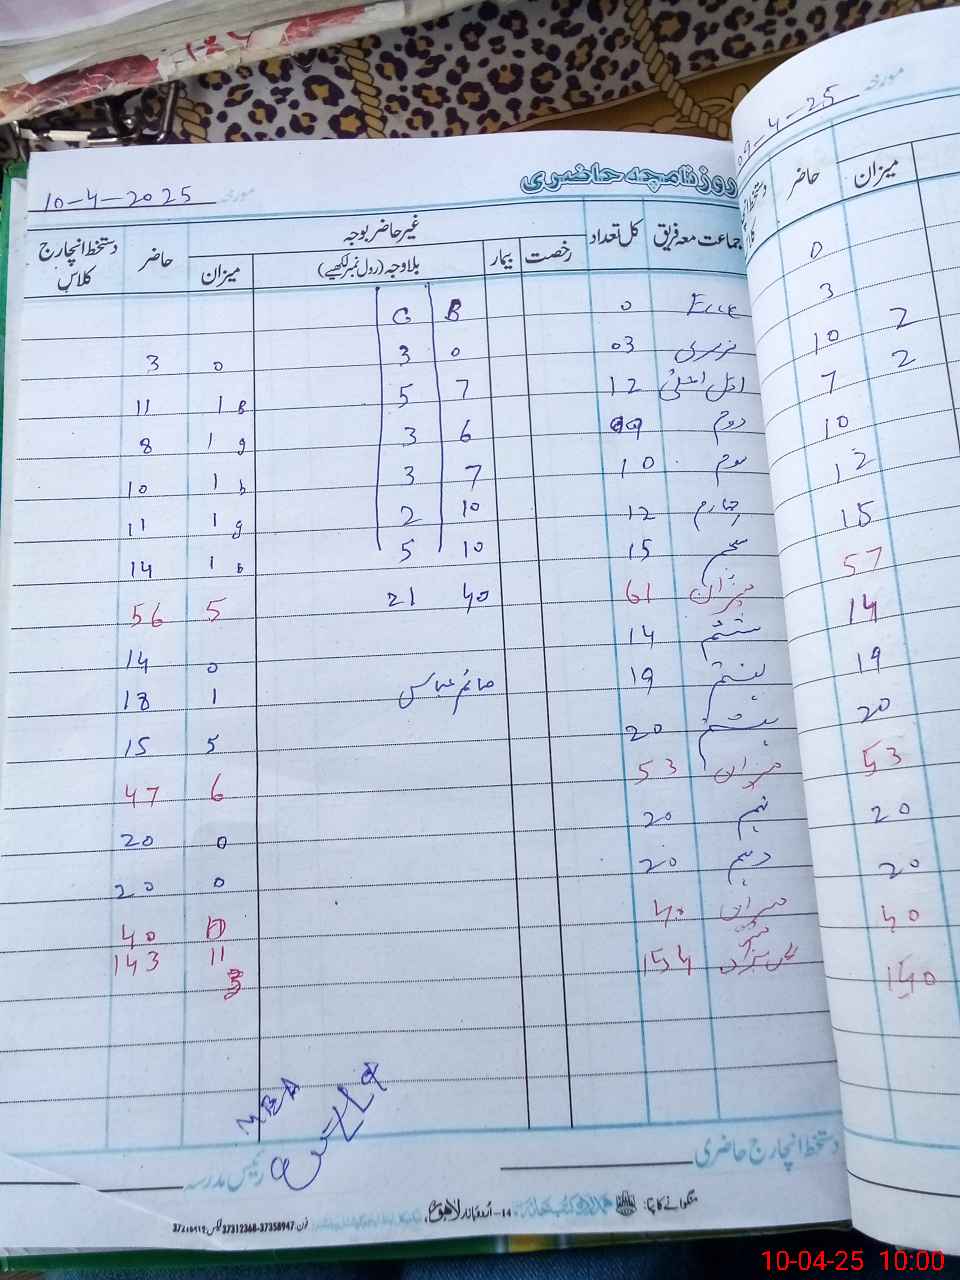 روزنامچہ حاضری مورخہ 10-4-2025
جماعت معہ فریق کل تعداد غیر حاضر بوجہ حاضر دستخط انچارج کلاس
رخصت بیمار بلاوجہ (رول نمبر لکھیے) میزان
Ecce 0 B G
نرسری 03 0 3 0 3
اول اعلیٰ 12 7 5 1 B 11
دوم 09 6 3 1 g 8
سوم 10 7 3 1 b 10
چہارم 12 10 2 1 g 11
پنجم 15 10 5 1 b 14
میزان 61 40 21 5 56
ششم 14 0 14
ہفتم 19 صائم عباس 1 18
ہشتم 20 5 15
میزان 53 6 47
نہم 20 0 20
دہم 20 0 20
میزان 40 0 40
میزان 154 11 143
3
دستخط انچارج حاضری
رئیس مدرسہ
منگوانے کا پتا: 14-اردو بازار لاہور فون: 37312368-37358947
مورخہ 09-4-25
حاضر میزان
0
3
10 2
7 2
10
12
15
57
14
19
20
53
20
20
40
140
10-04-25 10:00